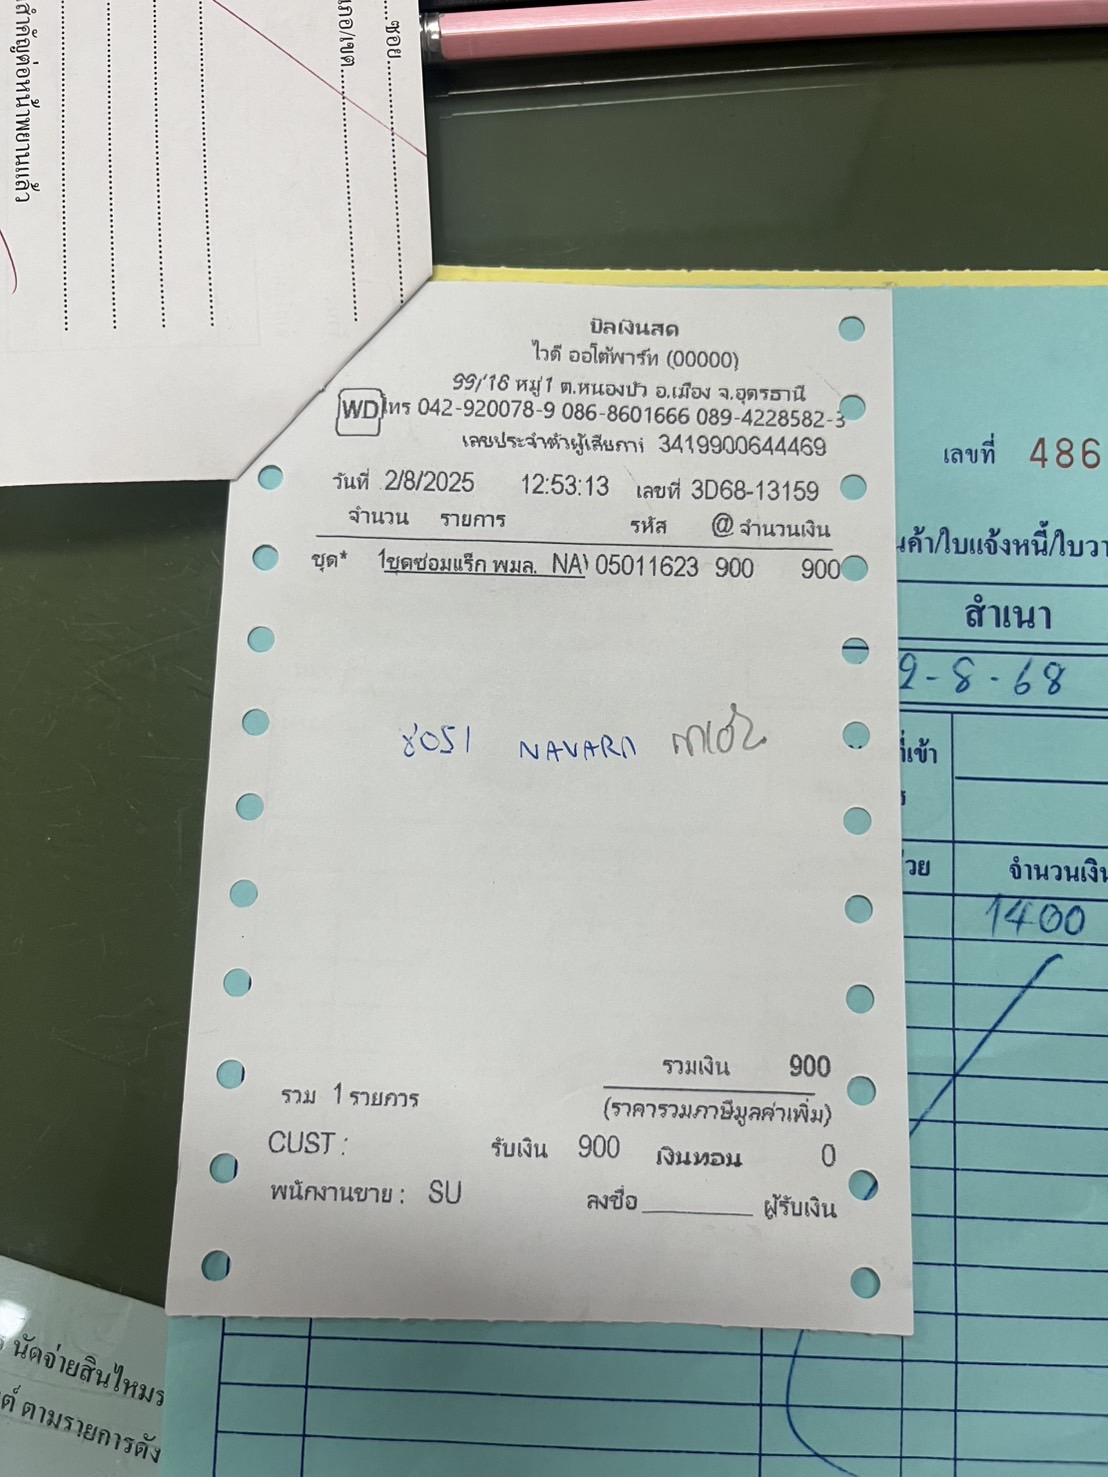 ซอย
เภอ/เขต
สำคัญต่อหน้าพยานแล้ว
บิลเงินสด
ไวดี ออโต้พาร์ท (00000)
99/16 หมู่1 ต.หนองบัว อ.เมือง จ.อุดรธานี
WD โทร 042-920078-9 086-8601666 089-4228582-3
เลขประจำตัวผู้เสียภาษี 3419900644469
วันที่ 2/8/2025 12:53:13 เลขที่ 3D68-13159
จำนวน รายการ รหัส @ จำนวนเงิน
ชุด* 1 ชุดซ่อมแร็ก พมล. NA 05011623 900 900
8051 NAVARA
รวมเงิน 900
รวม 1 รายการ (ราคารวมภาษีมูลค่าเพิ่ม)
CUST : รับเงิน 900 เงินทอน 0
พนักงานขาย : SU ลงชื่อ ผู้รับเงิน
เลขที่ 486
นค้า/ใบแจ้งหนี้/ใบวา
สำเนา
2-8-68
ที่เข้า
วย จำนวนเงิน
1400
นัดจ่ายสินไหมร
ต์ ตามรายการดัง